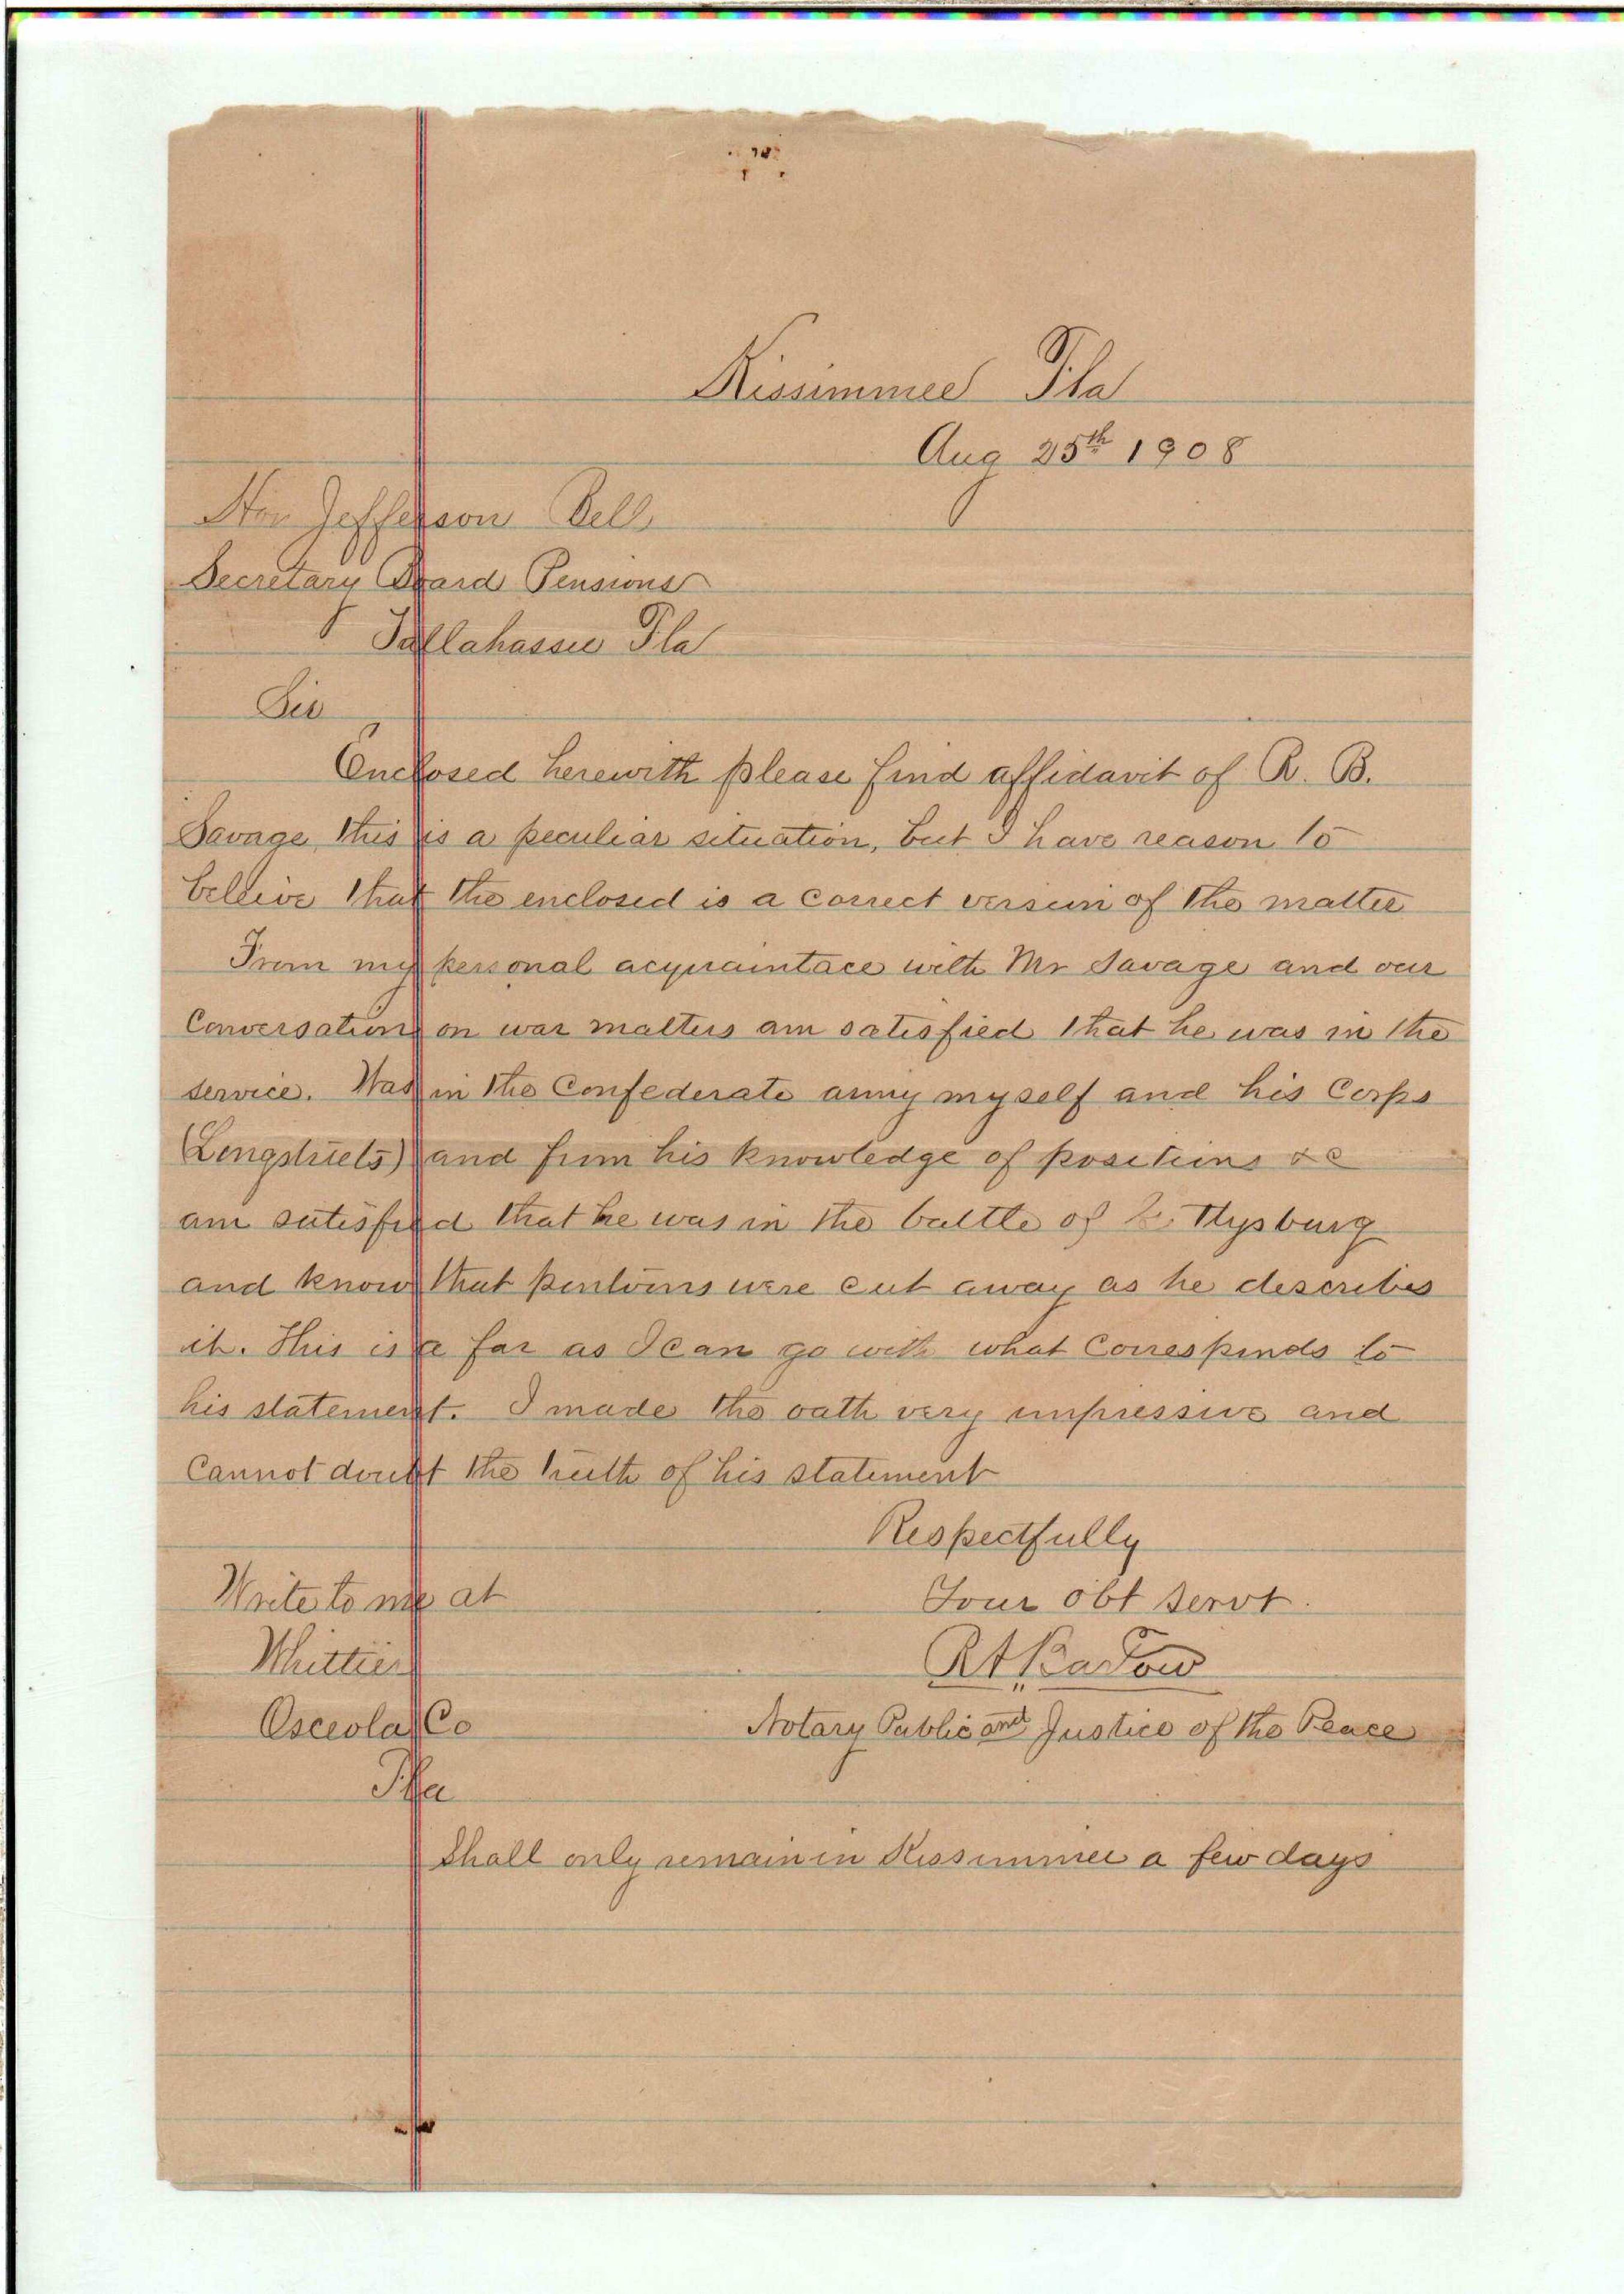 Kissimmee Fla
Aug 25th 1908
Hon Jefferson Bell
Secretary Board Pensions
Tallahassee Fla
Sir
Enclosed herewith please find affidavit of R. B.
Savage, this is a peculiar situation, but I have reason to
beleive that the enclosed is a correct version of the matter
From my personal acquaintace with Mr Savage and our
Conversations on war matters am satisfied that he was in the
service. Was in the Confederate army myself and his Corps
(Longstreets) and from his knowledge of positions &c
am satisfied that he was in the battle of Gettysburg
and know that pontoons were cut away as he describes
it. This is a far as I can go with what Corresponds to
his statement. I made the oath very impressive and
Cannot doubt the truth of his statement
Respectfully
Write to me at Your obt servt.
Whittier
Osceola Co Notary Public and Justice of the Peace
Fla
Shall only remain in Kissimmee a few days